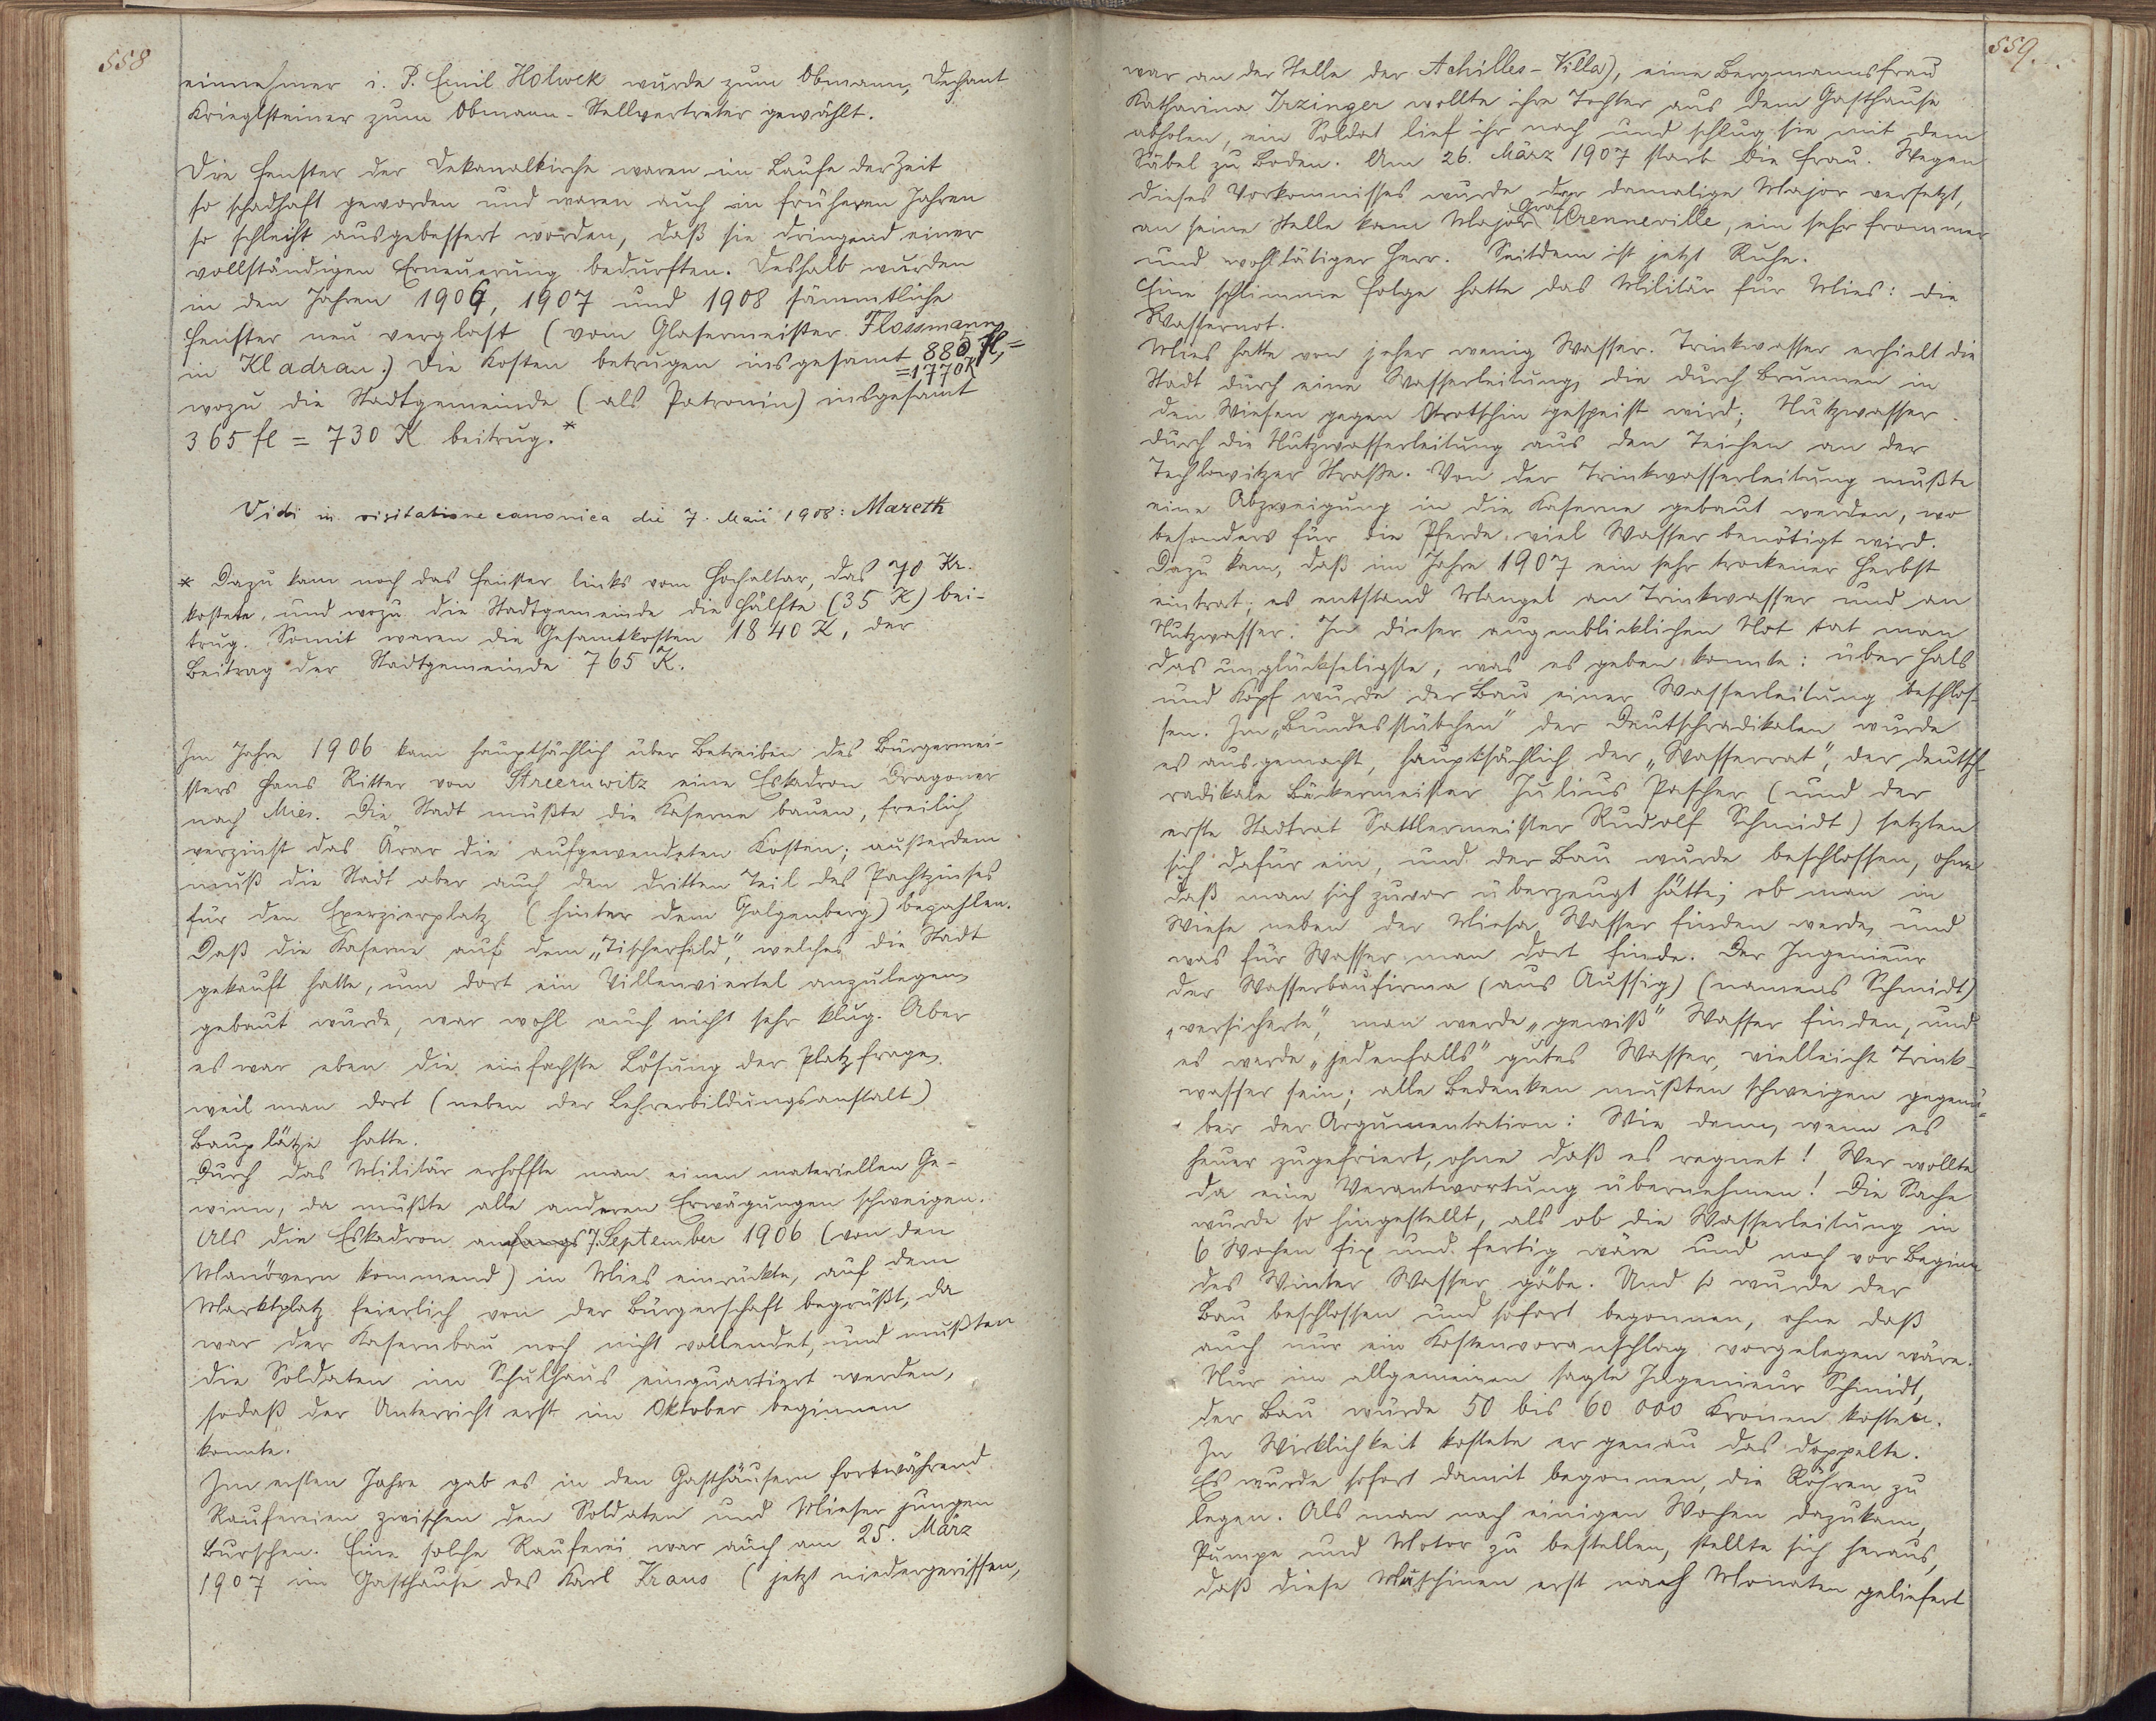 558
einnehmer i. P. Emil Holwek wurde zum Obmann, Dechant
Krieglsteiner zum Obmann-Stellvertreter gewählt.
Die Fenster der Dekanalkirche waren im Laufe der Zeit
so schadhaft geworden und waren auch in früheren Jahren
so schlecht ausgebessert worden, daß sie dringend einer
vollständigen Erneuerung bedurften. Deshalb wurden
in den Jahren 1906, 1907 und 1908 sämmtliche
Fenster neu verglast (vom Glasermeister Flossmann
in Kladrau.) Die Kosten betrugen insgesamt 885 fl, =
=1770K
wozu die Stadtgemeinde (als Patronin) insgesamt
365 fl = 730 K beitrug.*
Vidi in visitatione canonica die 7. Maii 1908: Mareth
* Dazu kam noch das Fenster links vom Hochaltar, das 70 Kr.
kostete, und wozu die Stadtgemeinde die Hälfte (35 K) bei-
trug. Somit waren die Gesamtkosten 1840 K, der
Beitrag der Stadtgemeinde 765 K.
Im Jahre 1906 kam hauptsächlich über Betreiben des Bürgermei-
sters Hans Ritter von Streeruwitz eine Eskadron Dragoner
nach Mies. Die Stadt mußte die Kaserne bauen, freilich
verzinst das Ärar die aufgewendeten Kosten; außerdem
muß die Stadt aber auch den dritten Teil des Pachtzinses
für den Exerzierplatz (hinter dem Galgenberg) bezahlen.
Daß die Kaserne auf dem „Tischerfeld", welches die Stadt
gekauft hatte, um dort ein Villenviertel anzulegen,
gebaut wurde, war wohl auch nicht sehr klug. Aber
es war eben die einfachste Lösung der Platzfrage,
weil man dort (neben der Lehrerbildungsanstalt)
Bauplätze hatte.
Durch das Militär erhoffte man einen materiellen Ge-
winn, da mußte alle anderen Erwägungen schweigen.
Als die Eskadron anfangs 7. September 1906 (von den
Manövern kommend) in Mies einrückte, auf dem
Marktplatz feierlich von der Bürgerschaft begrüßt, da
war der Kasernbau noch nicht vollendet, und mußten
die Soldaten im Schulhaus einquartiert werden,
sodaß der Unterricht erst im Oktober beginnen
konnte.
Im ersten Jahre gab es in den Gasthäusern fortwährend
Raufereien zwischen den Soldaten und Mieser jungen
Burschen. Eine solche Rauferei war auch am 25. März
1907 im Gasthause des Karl Kraus (jetzt niedergerissen,
559.
war an der Stelle der Achilles-Villa), eine Bergmannsfrau
Katharina Irzinger wollte ihre Tochter aus dem Gasthause
abholen, ein Soldat lief ihr nach und schlug sie mit dem
Säbel zu Boden. Am 26. März 1907 starb die Frau. Wegen
dieses Vorkommnisses wurde der damalige Major versetzt,
an seine Stelle kam Major Graf Crenneville, ein sehr frommer
und wohltätiger Herr. Seitdem ist jetzt Ruhe.
Eine schlimme Folge hatte das Militär für Mies: die
Wassernot.
Mies hatte von jeher wenig Wasser. Trinkwasser erhielt die
Stadt durch eine Wasserleitung, die durch Brunnen in
den Wiesen gegen Otrotschin gespeist wird; Nutzwasser
durch die Nutzwasserleitung aus den Teichen an der
Techlowitzer Straße. Von der Trinkwasserleitung mußte
eine Abzweigung in die Kaserne gebaut werden, wo
besonders für die Pferde viel Wasser benötigt wird.
Dazu kam, daß im Jahre 1907 ein sehr trockener Herbst
eintrat; es entstand Mangel an Trinkwasser und an
Nutzwasser. In dieser augenblicklichen Not tat man
das unglückseligste, was es geben konnte: über Hals
und Kopf wurde der Bau einer Wasserleitung beschlos-
sen. Im „Bundesstübchen" der Deutschradikalen wurde
es ausgemacht, hauptsächlich der „Wasserrat", der deutsch-
radikale Bäckermeister Julius Pascher (und der
erste Stadtrat Sattlermeister Rudolf Schmidt) setzten
sich dafür ein, und der Bau wurde beschlossen, ohne
daß man sich zuvor überzeugt hätte, ob man in
Wiese neben der Miesa Wasser finden werde, und
was für Wasser man dort finde. Der Ingenieur
der Wasserbaufirma (aus Aussig) (namens Schmidt)
„versicherte", man werde „gewiß" Wasser finden, und
es werde „jedenfalls" gutes Wasser, vielleicht Trink-
wasser sein; alle Bedenken mußten schweigen gegenü-
ber der Argumentation: Wie denn, wenn es
heuer zugefriert, ohne daß es regnet! Wer wollte
da eine Verantwortung übernehmen! Die Sache
wurde so hingestellt, als ob die Wasserleitung in
6 Wochen fix und fertig wäre und noch vor Beginn
des Winter Wasser gäbe. Und so wurde der
Bau beschlossen und sofort begonnen, ohne daß
auch nur ein Kostenvoranschlag vorgelegen wäre.
Nur im allgemeinen sagte Ingenieur Schmidt,
der Bau würde 50 bis 60 000 Kronen kosten.
In Wirklichkeit kostete er genau das doppelte.
Es wurde sofort damit begonnen, die Röhren zu
legen. Als man nach einigen Wochen dazukam,
Pumpe und Motor zu bestellen, stellte sich heraus,
daß diese Maschinen erst nach Monaten geliefert